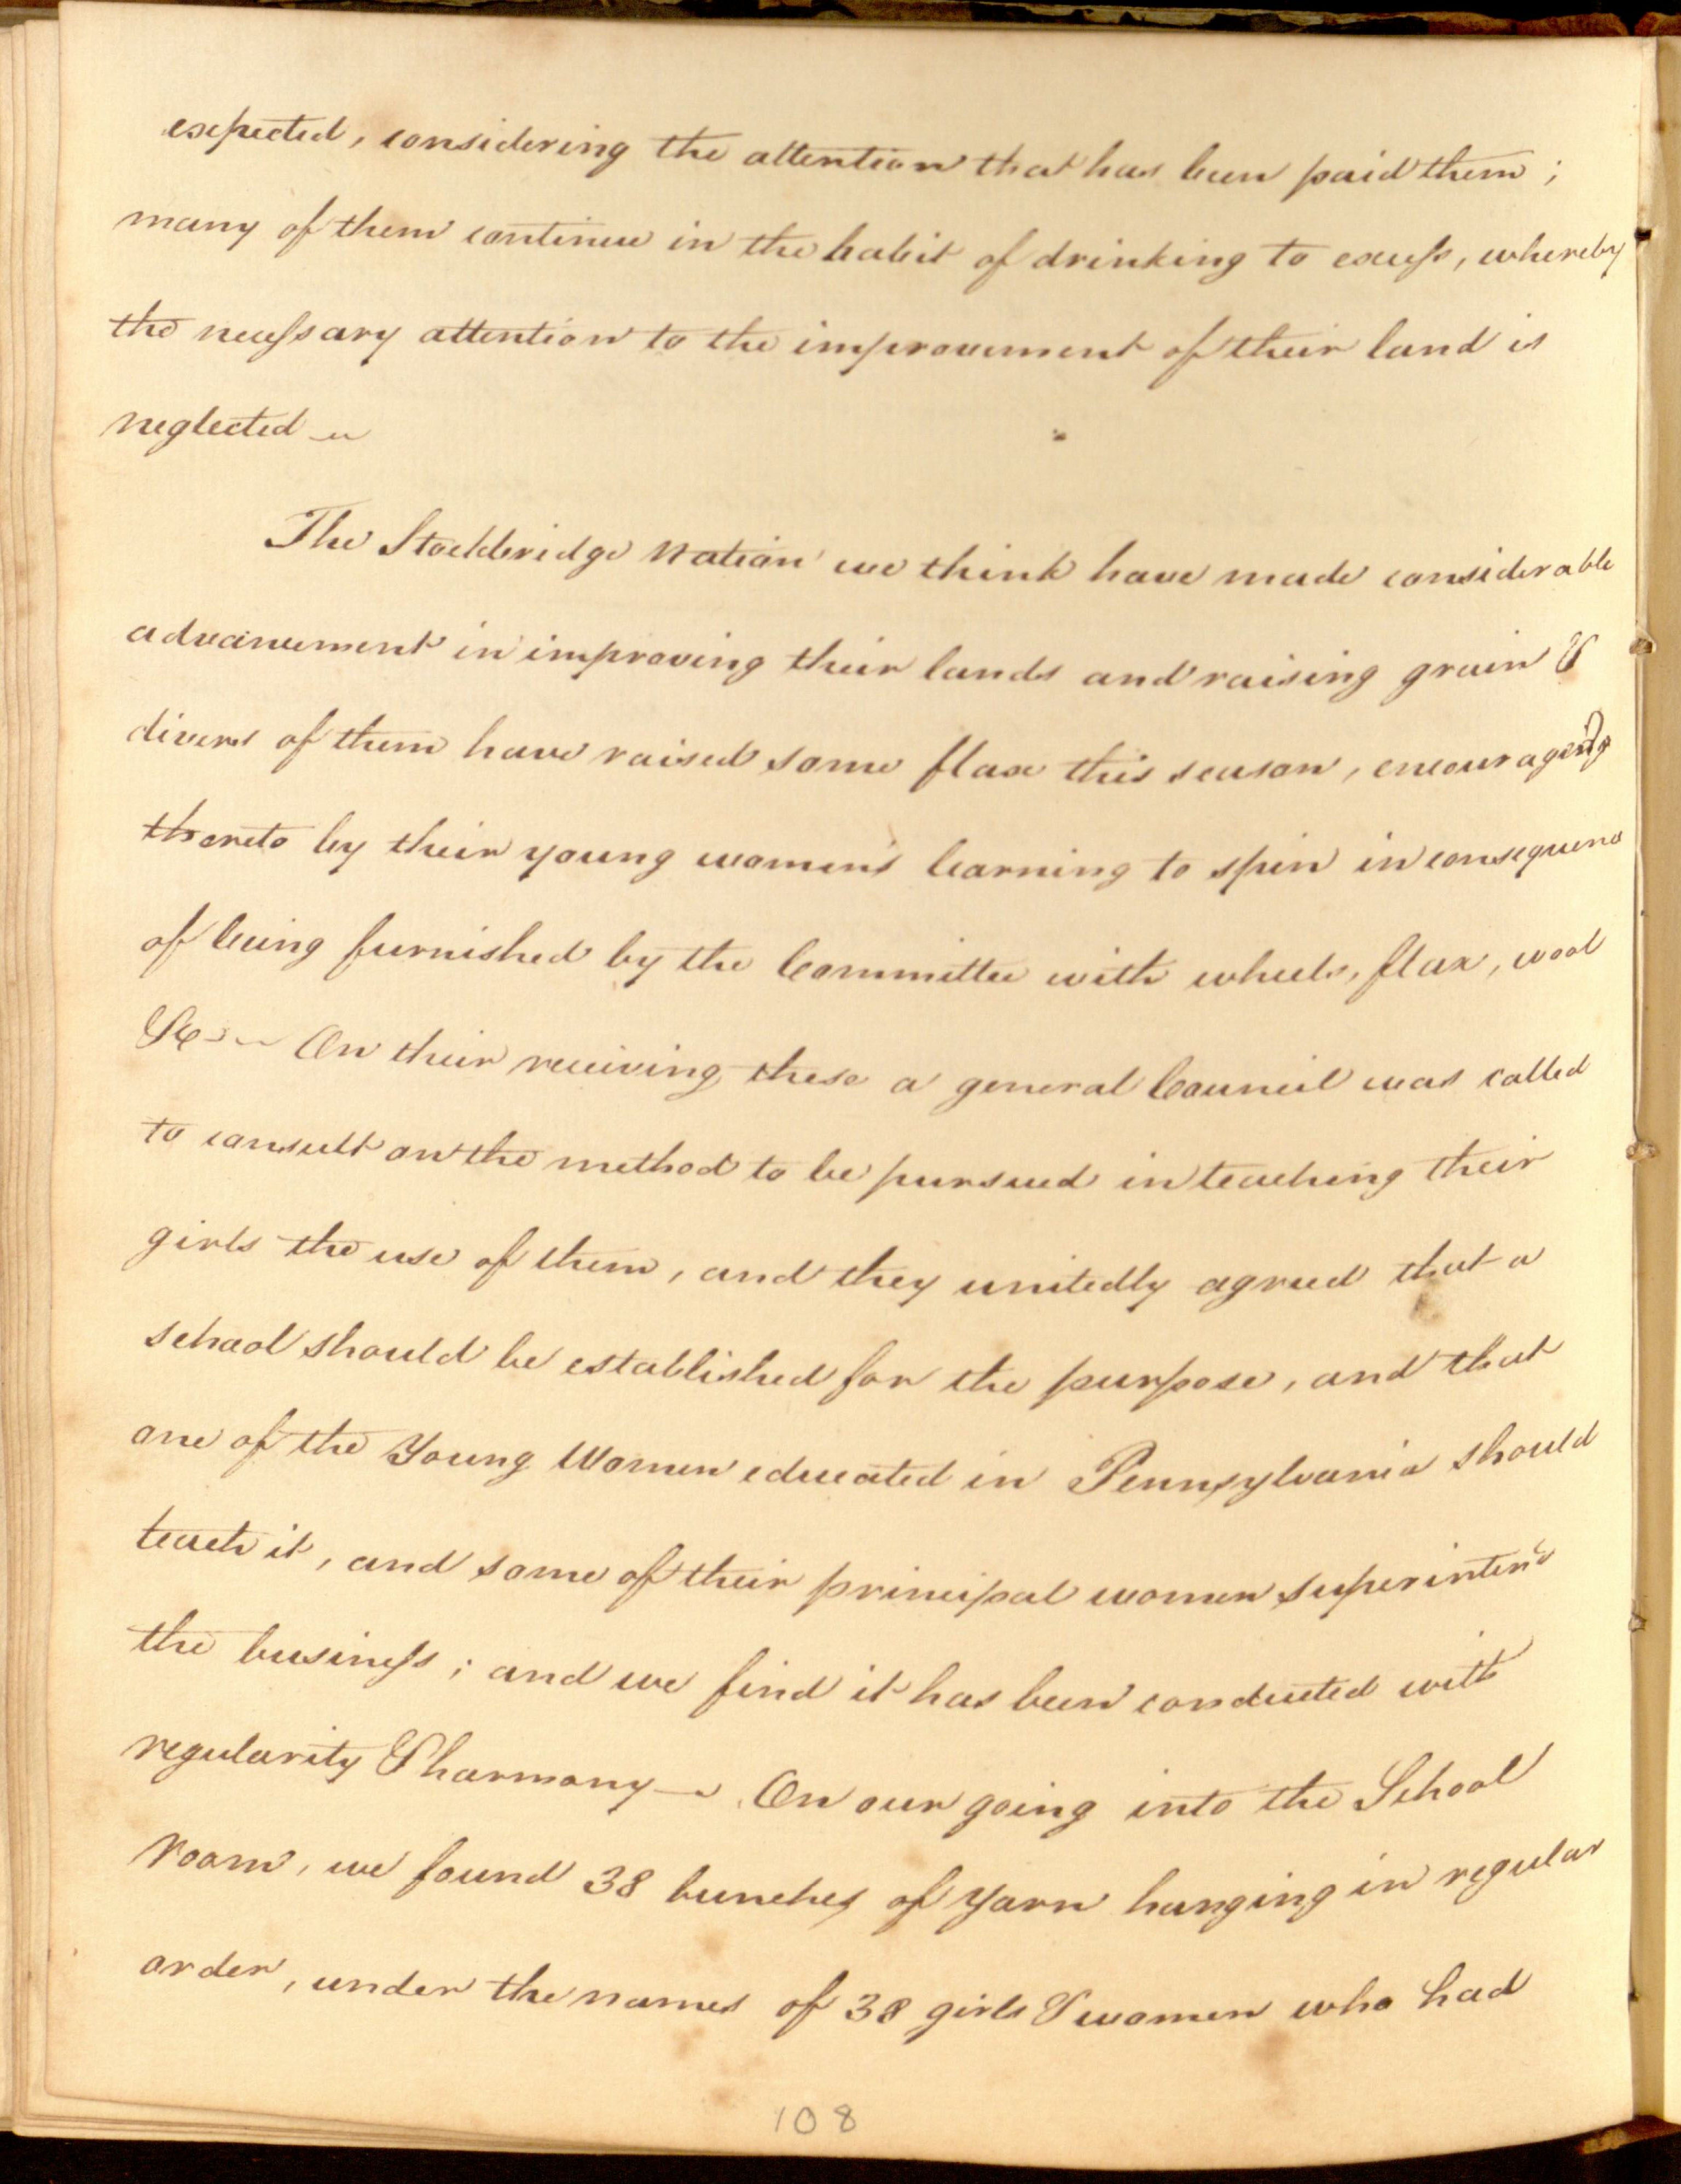 expected, considering the attention that has been paid them;
many of them continue in the habit of drinking to excess, whereby
the necessary attention to the improvement of their land is
neglected
The Stockbridge Nation we think have made considerable
advancement in improving their lands and raising grain &
divers of them have raised some flax this season,
thereto by their young women's learning to spin in consequence
of being furnished by the Committee with wheels, flax, wool
&c — On their receiving these a general Council was called
to consult on the method to be pursued in teaching their
girls the use of them, and they unitedly agreed that a
school should be established for the purpose, and that
one of the Young Women educated in Pennsylvania should
teach it, and some of their principal women superintend
the business; and we find it has been conducted with
regularity & harmony — On our going into the School
room, we found 38 bunches of Yarn hanging in regular
order, under the names of 38 girls & women who had
108